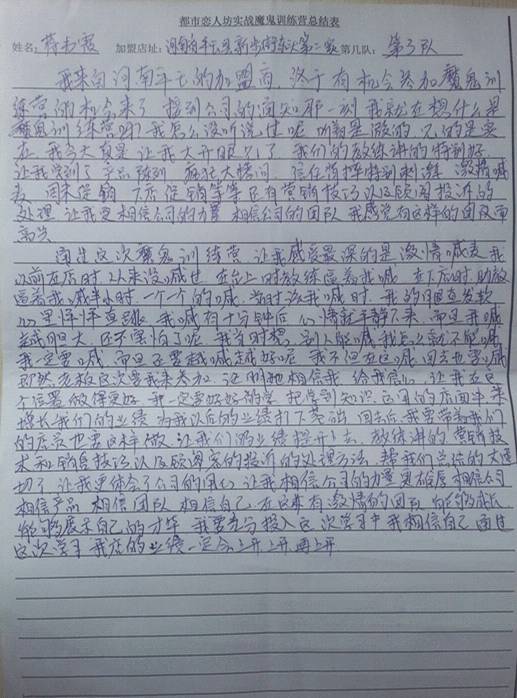 都市恋人坊实战魔鬼训练营总结表
姓名: 蒋书霞 加盟店址: 河南 第几队: 第3队
我来自河南 的加盟商 终于有机会参加魔鬼训
练营的机会来了 接到公司的通知那一刻 我就在想什么是
魔鬼训练营呀 我怎么没听说过呢
在 我今天真是 让我大开眼 了 我们的教练讲的特别好
让我学到了 产品 疯狂大 特别刺激 激情喊
麦 促销 店促销等等还有营销技巧以及顾客投诉的
处理 让我更相信公司的力量 相信公司的团队 我感觉有这样的团队而
高兴
通过这次魔鬼训练营 让我感受最深的是激情喊麦 我
以前在店时 从来没喊过 在台上时教练逼着我喊 在下店时 助教
逼着我喊半小时 一个一个的喊 当时该我喊时 我的 直发软
心里怦怦直跳 我喊有十分钟后 心情就平静下来 而且我喊
越胆大 还不害怕了呢 我当时想 别人能喊我怎么就不能喊
我一定要喊 而且还要越喊越好呢 我不但在这喊 回去也要喊
即然老板这次要我来参加 证明她相信我 给我信心 让我在这
个位置做得更好 我一定要好好的学 把学到知识 店面里来
增长我们的业绩 为我以后的业绩打下基础 回去后我要带着我们
的店员也要这样做 让我们的业绩 教练讲的 营销技
术和销售技巧以及顾客的投诉的处理方法 帮我们总结的太
切了 让我更体会了公司的用心 让我相信公司的力量 相信公司
相信产品 相信团队 相信自己 在这样有激情的团队 能够成长
能够展示自己的才华 我要参与投入这次学习中 我相信自己 通过
这次学习 我店的业绩一定会上升上升再上升